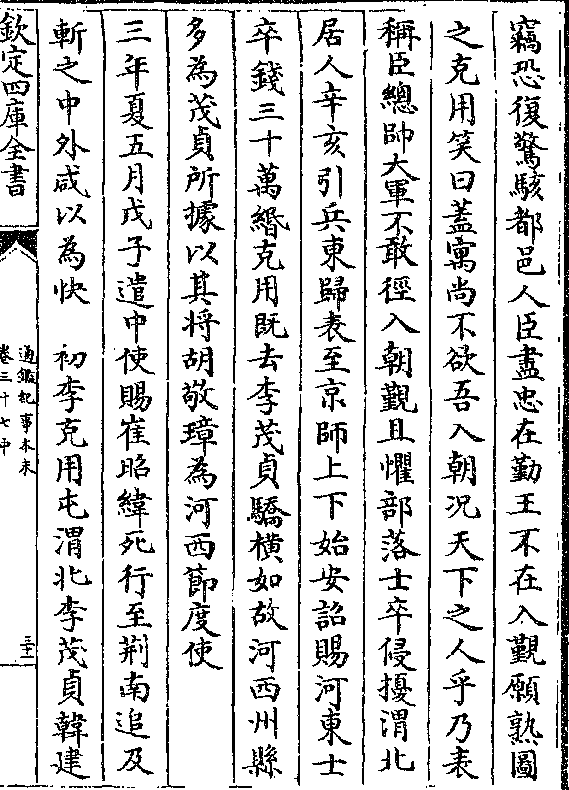 竊恐復驚駭都邑人臣盡忠在勤王不在入覲願熟圖
之克用笑曰蓋寓尚不欲吾入朝況天下之人乎乃表
稱臣總帥大軍不敢徑入朝覲且懼部落士卒侵擾渭北
居人辛亥引兵東歸表至京師上下始安詔賜河東士
卒錢三十萬緡克用既去李茂貞驕橫如故河西州縣
多為茂貞所據以其将胡敬璋為河西節度使
三年夏五月戊子遣中使賜崔昭緯死行至荆南追及
斬之中外咸以為快　初李克用屯渭北李茂貞韓建
欽定四庫全書
通鑑紀事本末
卷三十七中
三十二